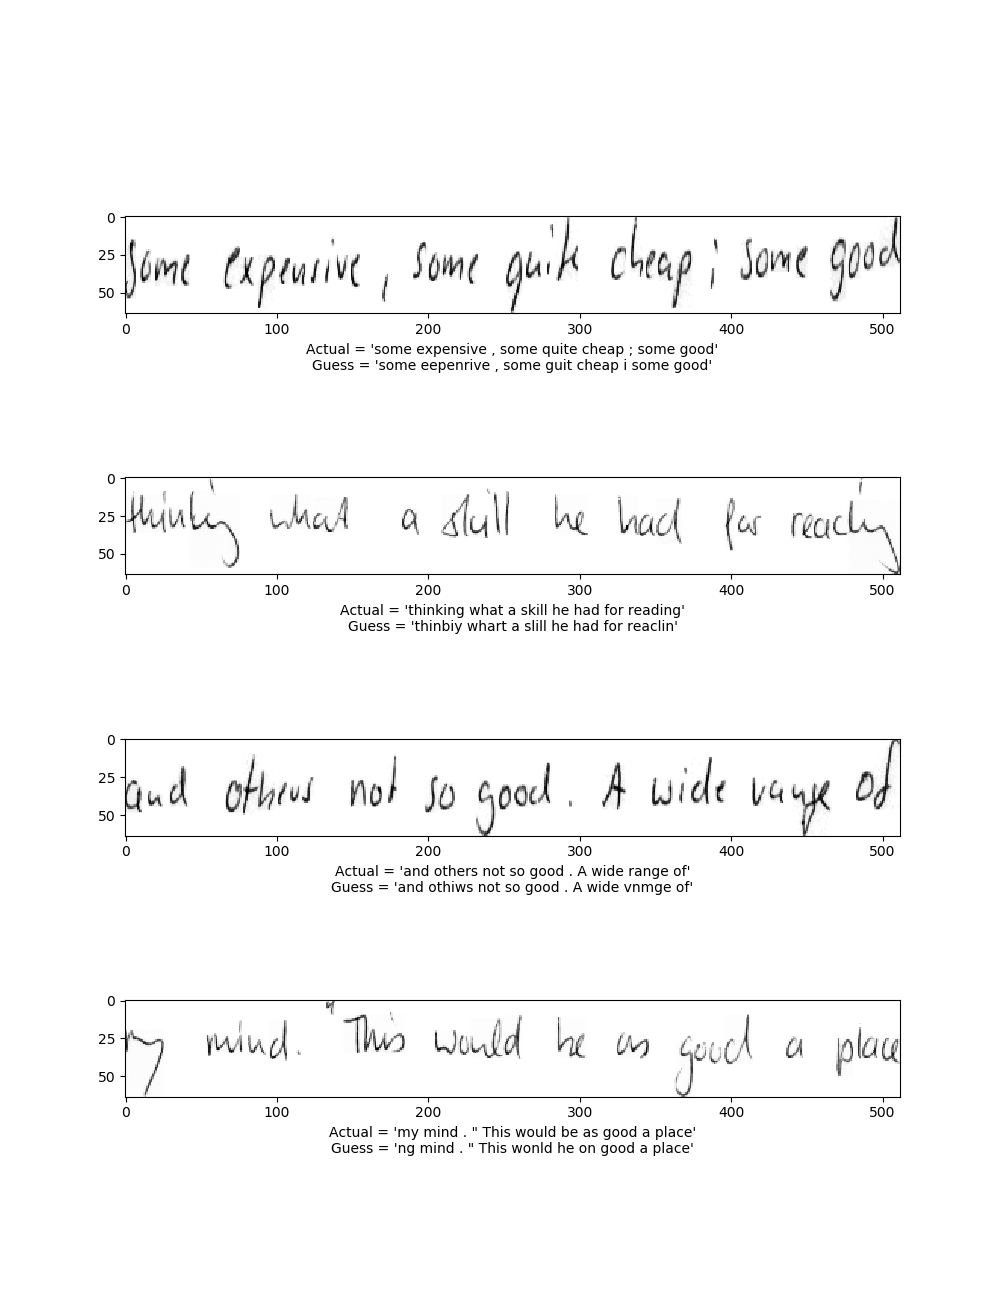 0
25
50
some expensive , some quite cheap ; some good
0 100 200 300 400 500
Actual = 'some expensive , some quite cheap ; some good'
Guess = 'some eepenrive , some guit cheap i some good'
0
25
50
thinking what a skill he had for reading
0 100 200 300 400 500
Actual = 'thinking what a skill he had for reading'
Guess = 'thinbiy whart a slill he had for reaclin'
0
25
50
and others not so good . A wide range of
0 100 200 300 400 500
Actual = 'and others not so good . A wide range of'
Guess = 'and othiws not so good . A wide vnmge of'
0
25
50
my mind . " This would be as good a place
0 100 200 300 400 500
Actual = 'my mind . " This would be as good a place'
Guess = 'ng mind . " This wonld he on good a place'